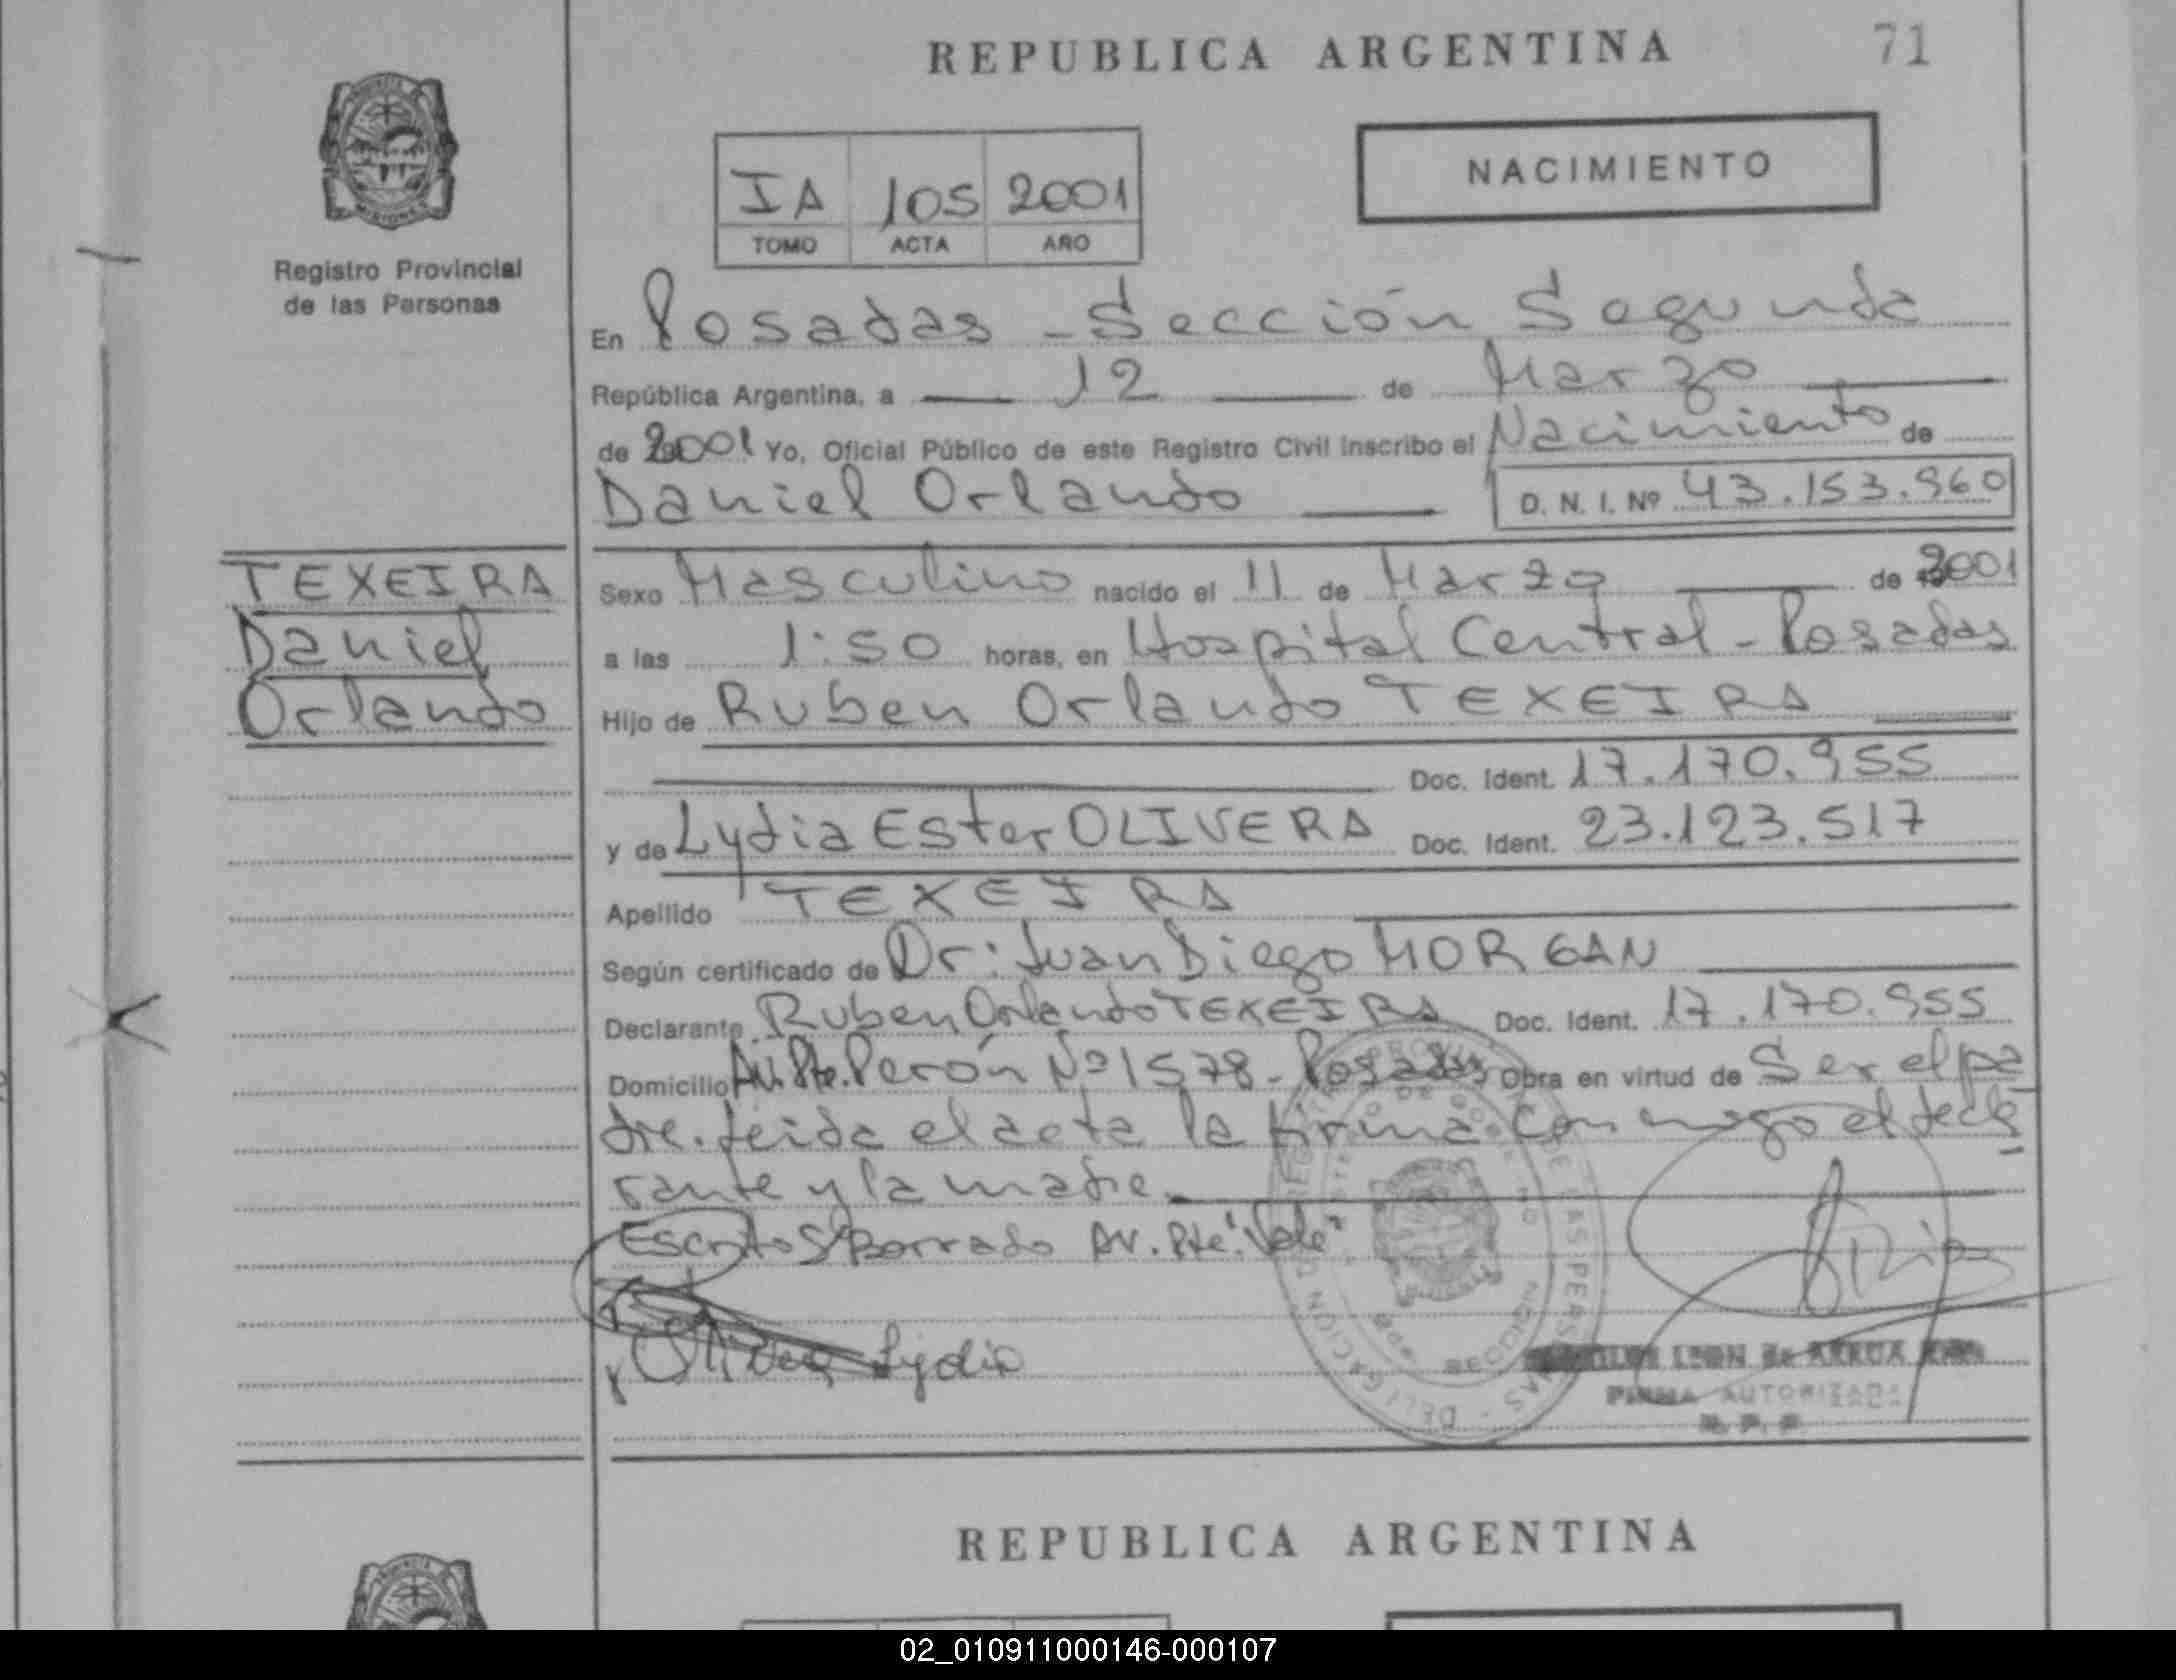 REPUBLICA ARGENTINA 71
NACIMIENTO
IA 105 2001
TOMO ACTA AÑO
Registro Provincial
de las Personas
En Posadas - Sección Segunda
República Argentina, a 12 de Marzo
de 2001 Yo, Oficial Público de este Registro Civil Inscribo el Nacimiento de
Daniel Orlando D. N. I. Nº 43.153.960
TEXEIRA
Daniel
Orlando
Sexo Masculino nacido el 11 de Marzo de 2001
a las 1:50 horas, en Hospital Central - Posadas
Hijo de Ruben Orlando TEXEIRA
Doc. Ident. 17.170.955
y de Lydia Ester OLIVERA Doc. Ident. 23.123.517
Apellido TEXEIRA
Según certificado de Dr: Juan Diego MORGAN
Declarante Ruben Orlando TEXEIRA Doc. Ident. 17.170.955
Domicilio Av. Pte. Perón Nº 1578 - Posadas Obra en virtud de Ser el pa
dre. Leida el acta la firma conmigo el decla
rante y la madre.
Escrito S/Borrado Av. Pte. "Vale"
Olivera Lydia
FIRMA AUTORIZADA
R. P. P.
REPUBLICA ARGENTINA
02_010911000146-000107